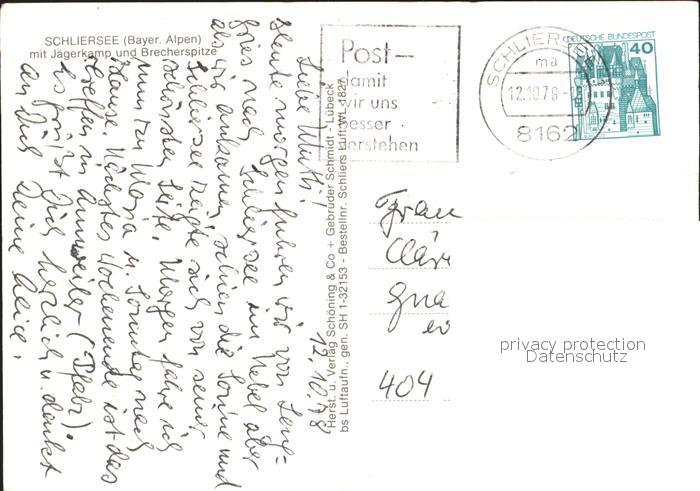 SCHLIERSEE (Bayer. Alpen)
mit Jägerkamp und Brecherspitze
12.10.78
Liebe Mutti!
Heute morgen fuhren wir von Leng-
gries nach Schliersee im Nebel aber
als wir ankamen, schien die Sonne und
Schliersee zeigte sich von seiner
schönsten Seite. Morgen fahre ich
nun zu Maria u. Sonntag nach
Hause. Nächstes Wochenende ist das
Treffen in Annweiler (Pfalz).
Es grüßt Dich herzlich u. denkt
an Dich Deine
Herst. u. Verlag Schöning & Co + Gebrüder Schmidt - Lübeck
bs Luftaufn., gen. SH 1-32153 - Bestellnr. Schliers Luft WL 1827
Post-
damit
wir uns
besser
verstehen
SCHLIERSEE
ma
12.10.78
8162
DEUTSCHE BUNDESPOST
40
Frau
404
privacy protection
Datenschutz